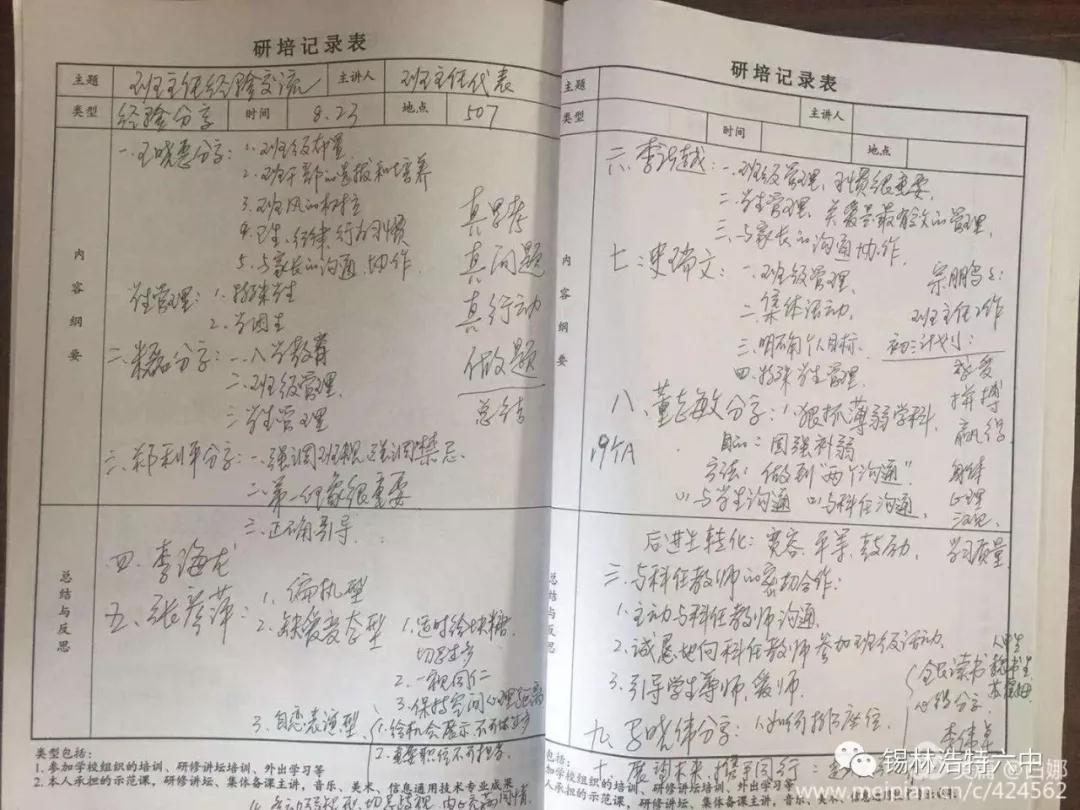 研培记录表
主题 班主任经验交流 主讲人 班主任代表
类型 经验分享 时间 8.23 地点 507
内容纲要
一.王晓惠分享：1.班级布置
2.班干部的选拔和培养
3.班风的树立
4.卫生、纪律、行为习惯
5.与家长的沟通、协作
学生管理：1.特殊学生
2.学困生
真思考
真问题
真行动
做题
总结
二.分享：一.入学教育
二.班级管理
三.学生管理
三.郑利平分享：一.强调班规,强调禁忌.
二.第一印象很重要
三.正确引导
总结与反思
四.李海龙
五.张彦萍：1.偏执型
2.缺爱变态型
1.适时给块糖
切忌过多
2.一视同仁
3.保持空间心理距离
3.自恋表演型
1.给机会展示不可
2.重要职位不可担当
类型包括：
1.参加学校组织的培训、研修讲坛培训、外出学习等
2.本人承担的示范课，研修讲坛、集体备课主讲，音乐、美术、信息通用技术专业成果
研培记录表
主题 主讲人
类型 时间 地点
内容纲要
六.李跃越：一.班级管理,习惯很重要.
二.学生管理,关爱是最有效的管理
三.与家长的沟通协作.
七：史瑞文：一.班级管理.
二.集体活动.
三.明确个人目标.
四.特殊学生管理.
宗鹏
班主任工作
初三计划：
拼搏
赢得
身体
心理
学习质量
八、董志敏分享：1.狠抓薄弱学科
目的：固强补弱
方法：做到“两个沟通”.
(1)与学生沟通 (2)与科任沟通.
总结与反思
后进生转化：宽容.平等.鼓励.
三.与科任教师的密切合作：
1.主动与科任教师沟通.
2.诚恳地向科任教师参加班级活动.
3.引导学生尊师、爱师.
全民读书
心得分享
九.晓伟分享：1.如何排座位
十.展望未来,携手同行：
包括：
加学校组织的培训、研修讲坛培训、外出学习等
人承担的示范课，研修讲坛、集体备课主讲，音乐、美术、信息
锡林浩特六中
www.meipian.me/c/424562